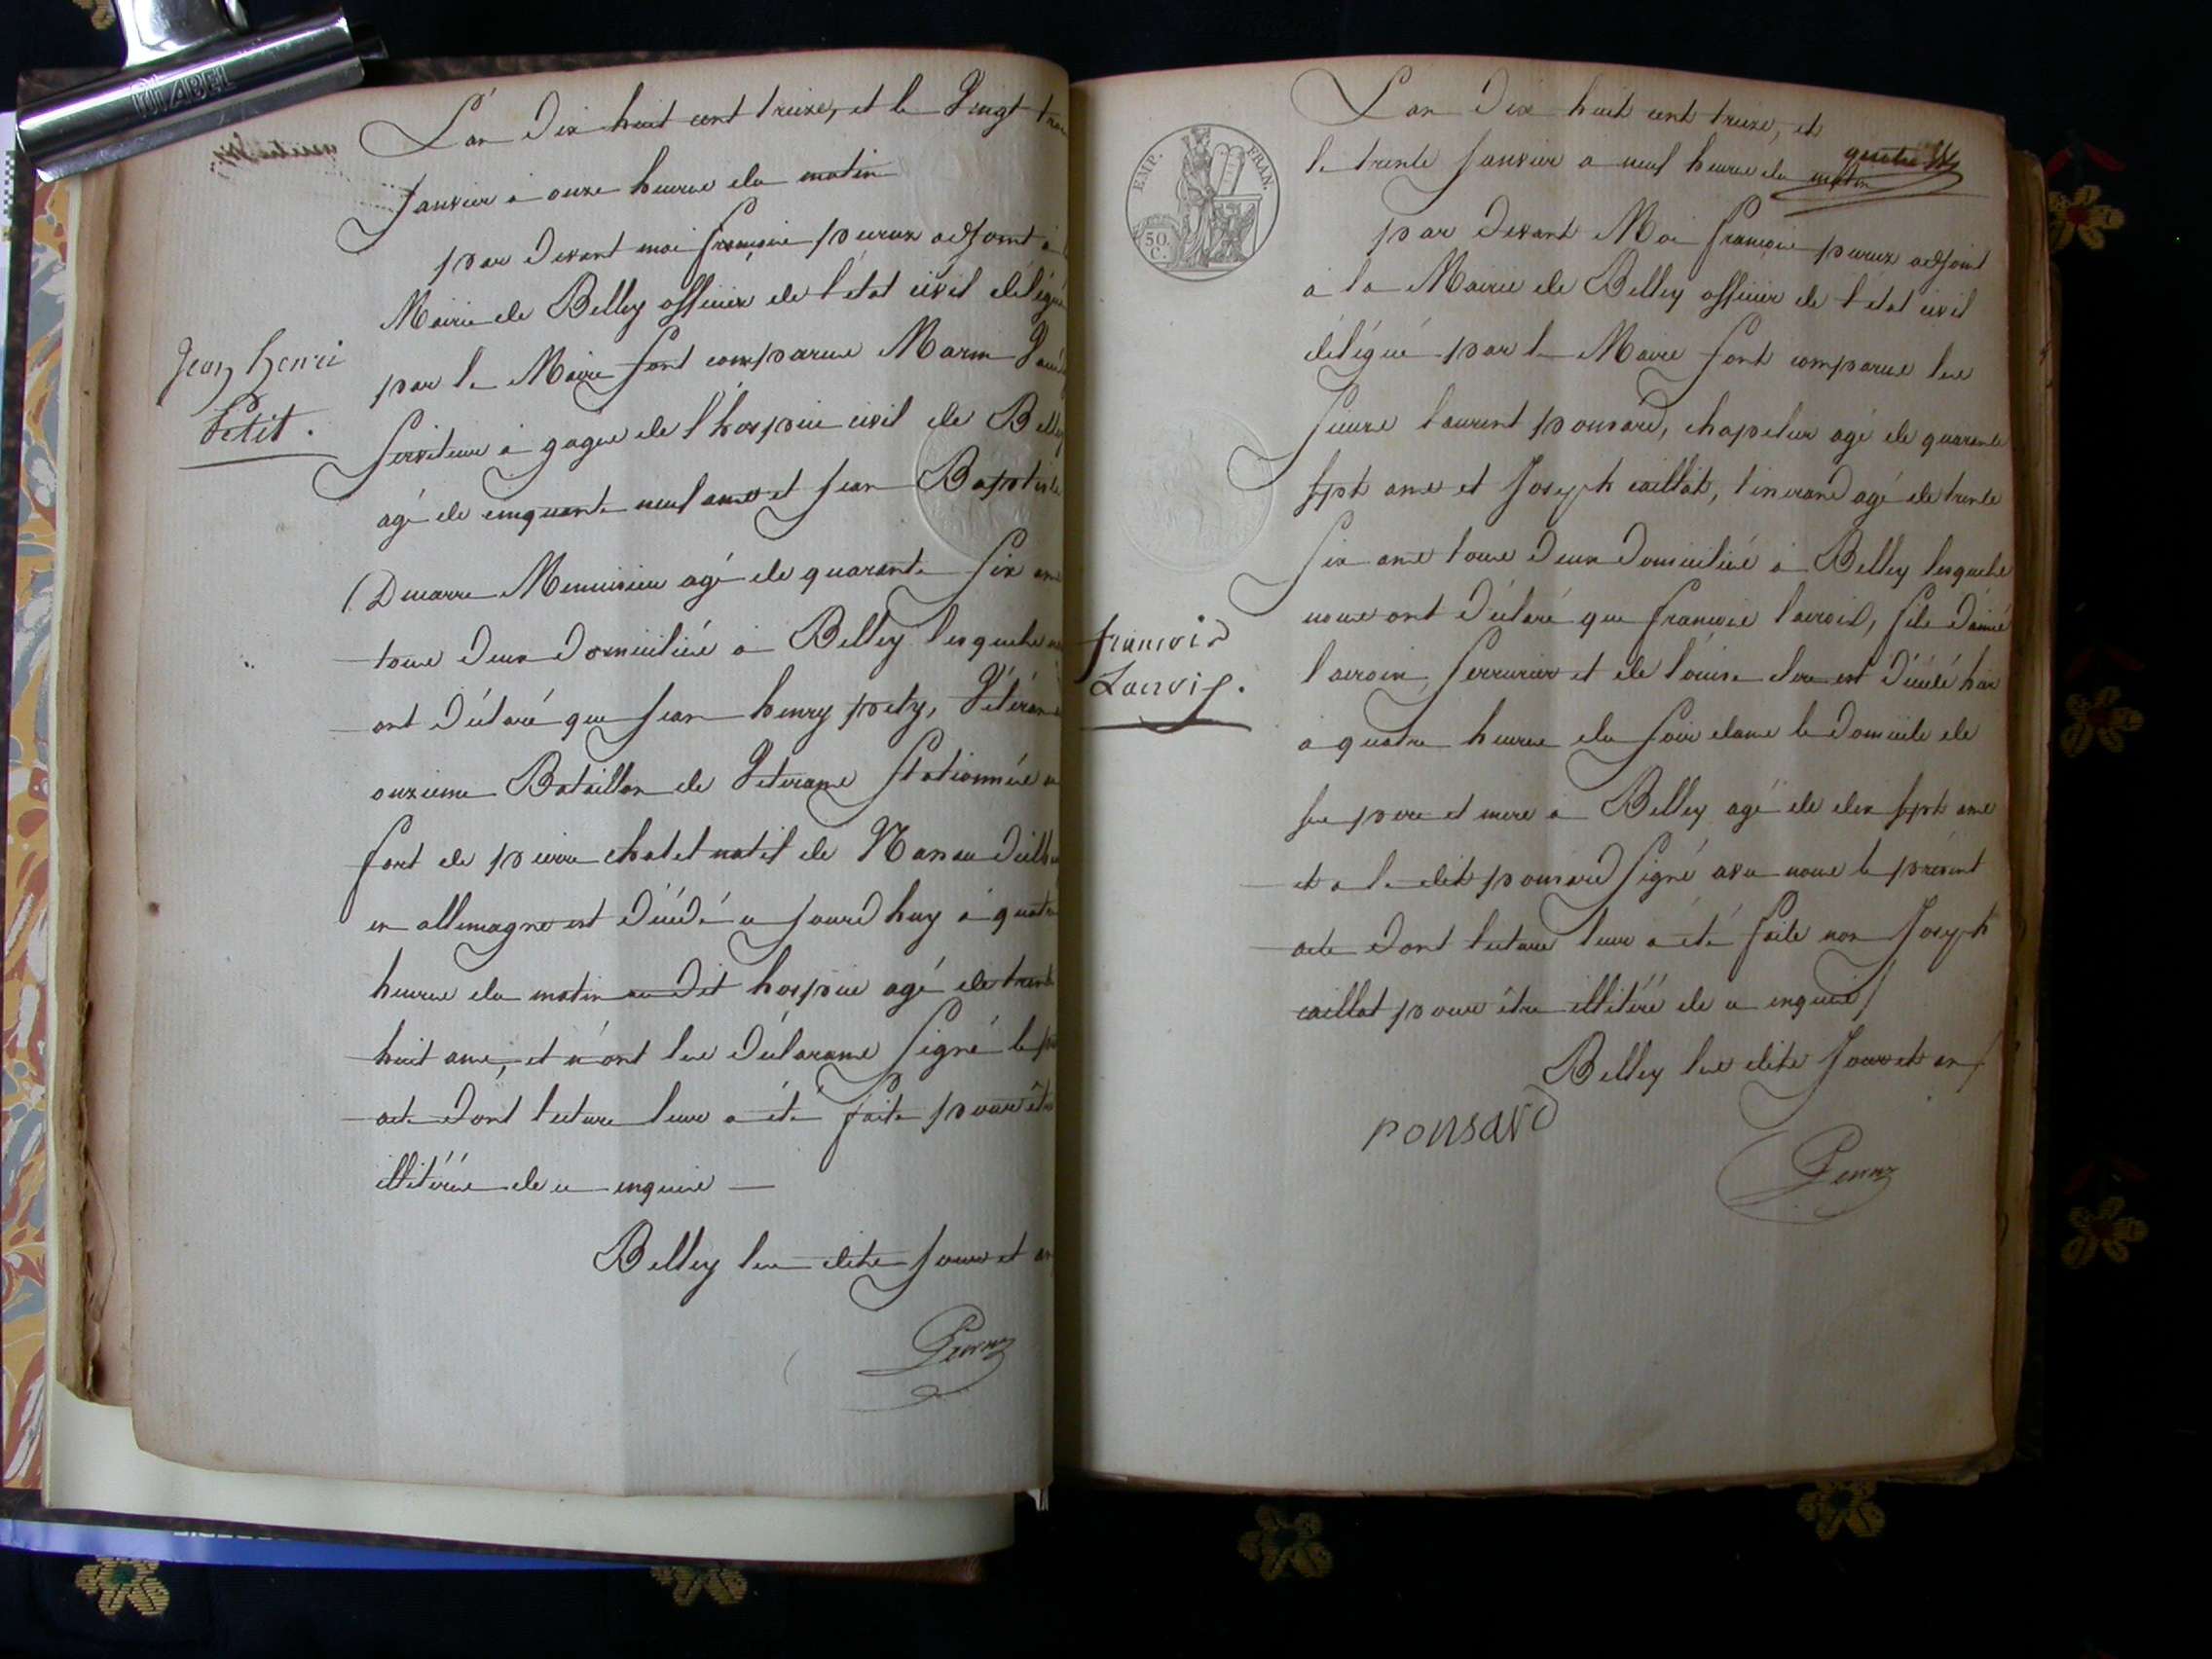 L'an Dix huit cent treize, et le Vingt trois
Janvier à onze heures du matin
par devant moi françois peruz adjoint à
Mairie de Belley officier de l'état civil délégué
par le Maire sont comparus Marin
Jean henri
petit.
Serviteur à gages de l'hospice civil de Belley
agé de cinquante neuf ans et jean Baptiste
Ducarre Menuisier agé de quarante Six ans
tous deux Domiciliés à Belley lesquels
ont Déclaré que Jean henry petty, Vétéran
onzieme Bataillon de Veterans Stationnés au
fort de pierre chatel natif de
en allemagne est Décédé ce jourd huy à quatre
heures du matin au dit hospice agé de trente
huit ans, et n'ont les Déclarans Signé le
acte Dont lecture leur a été faite pour être
illitérés de ce enquis
Belley les dits jour et an
Peruz
EMP. FRAN.
50.
C.
L'an Dix huit cent treize, et
quatre
le trente Janvier a neuf heures du matin
par devant Moi françois peruz adjoint
a la Mairie de Belley officier de l'état civil
délégué par le Maire sont comparus les
Sieurs laurent ponsard, chapelier agé de quarante
sept ans et Joseph caillat, tisserand agé de trente
Six ans tous deux Domiciliés à Belley lesquels
nous ont Déclaré que françois lacroix, fils d'aimé
francois
Lacroix.
lacroix, Serrurier et de louise est Décédé hier
a quatre heures du soir dans le Domicile de
ses pere et mere a Belley agé de dix sept ans
et a le dit ponsard Signé avec nous le présent
acte Dont lecture leur a été faite non Joseph
caillat pour être illitéré de ce enquis
Belley les dits jour et an
ponsard
Peruz